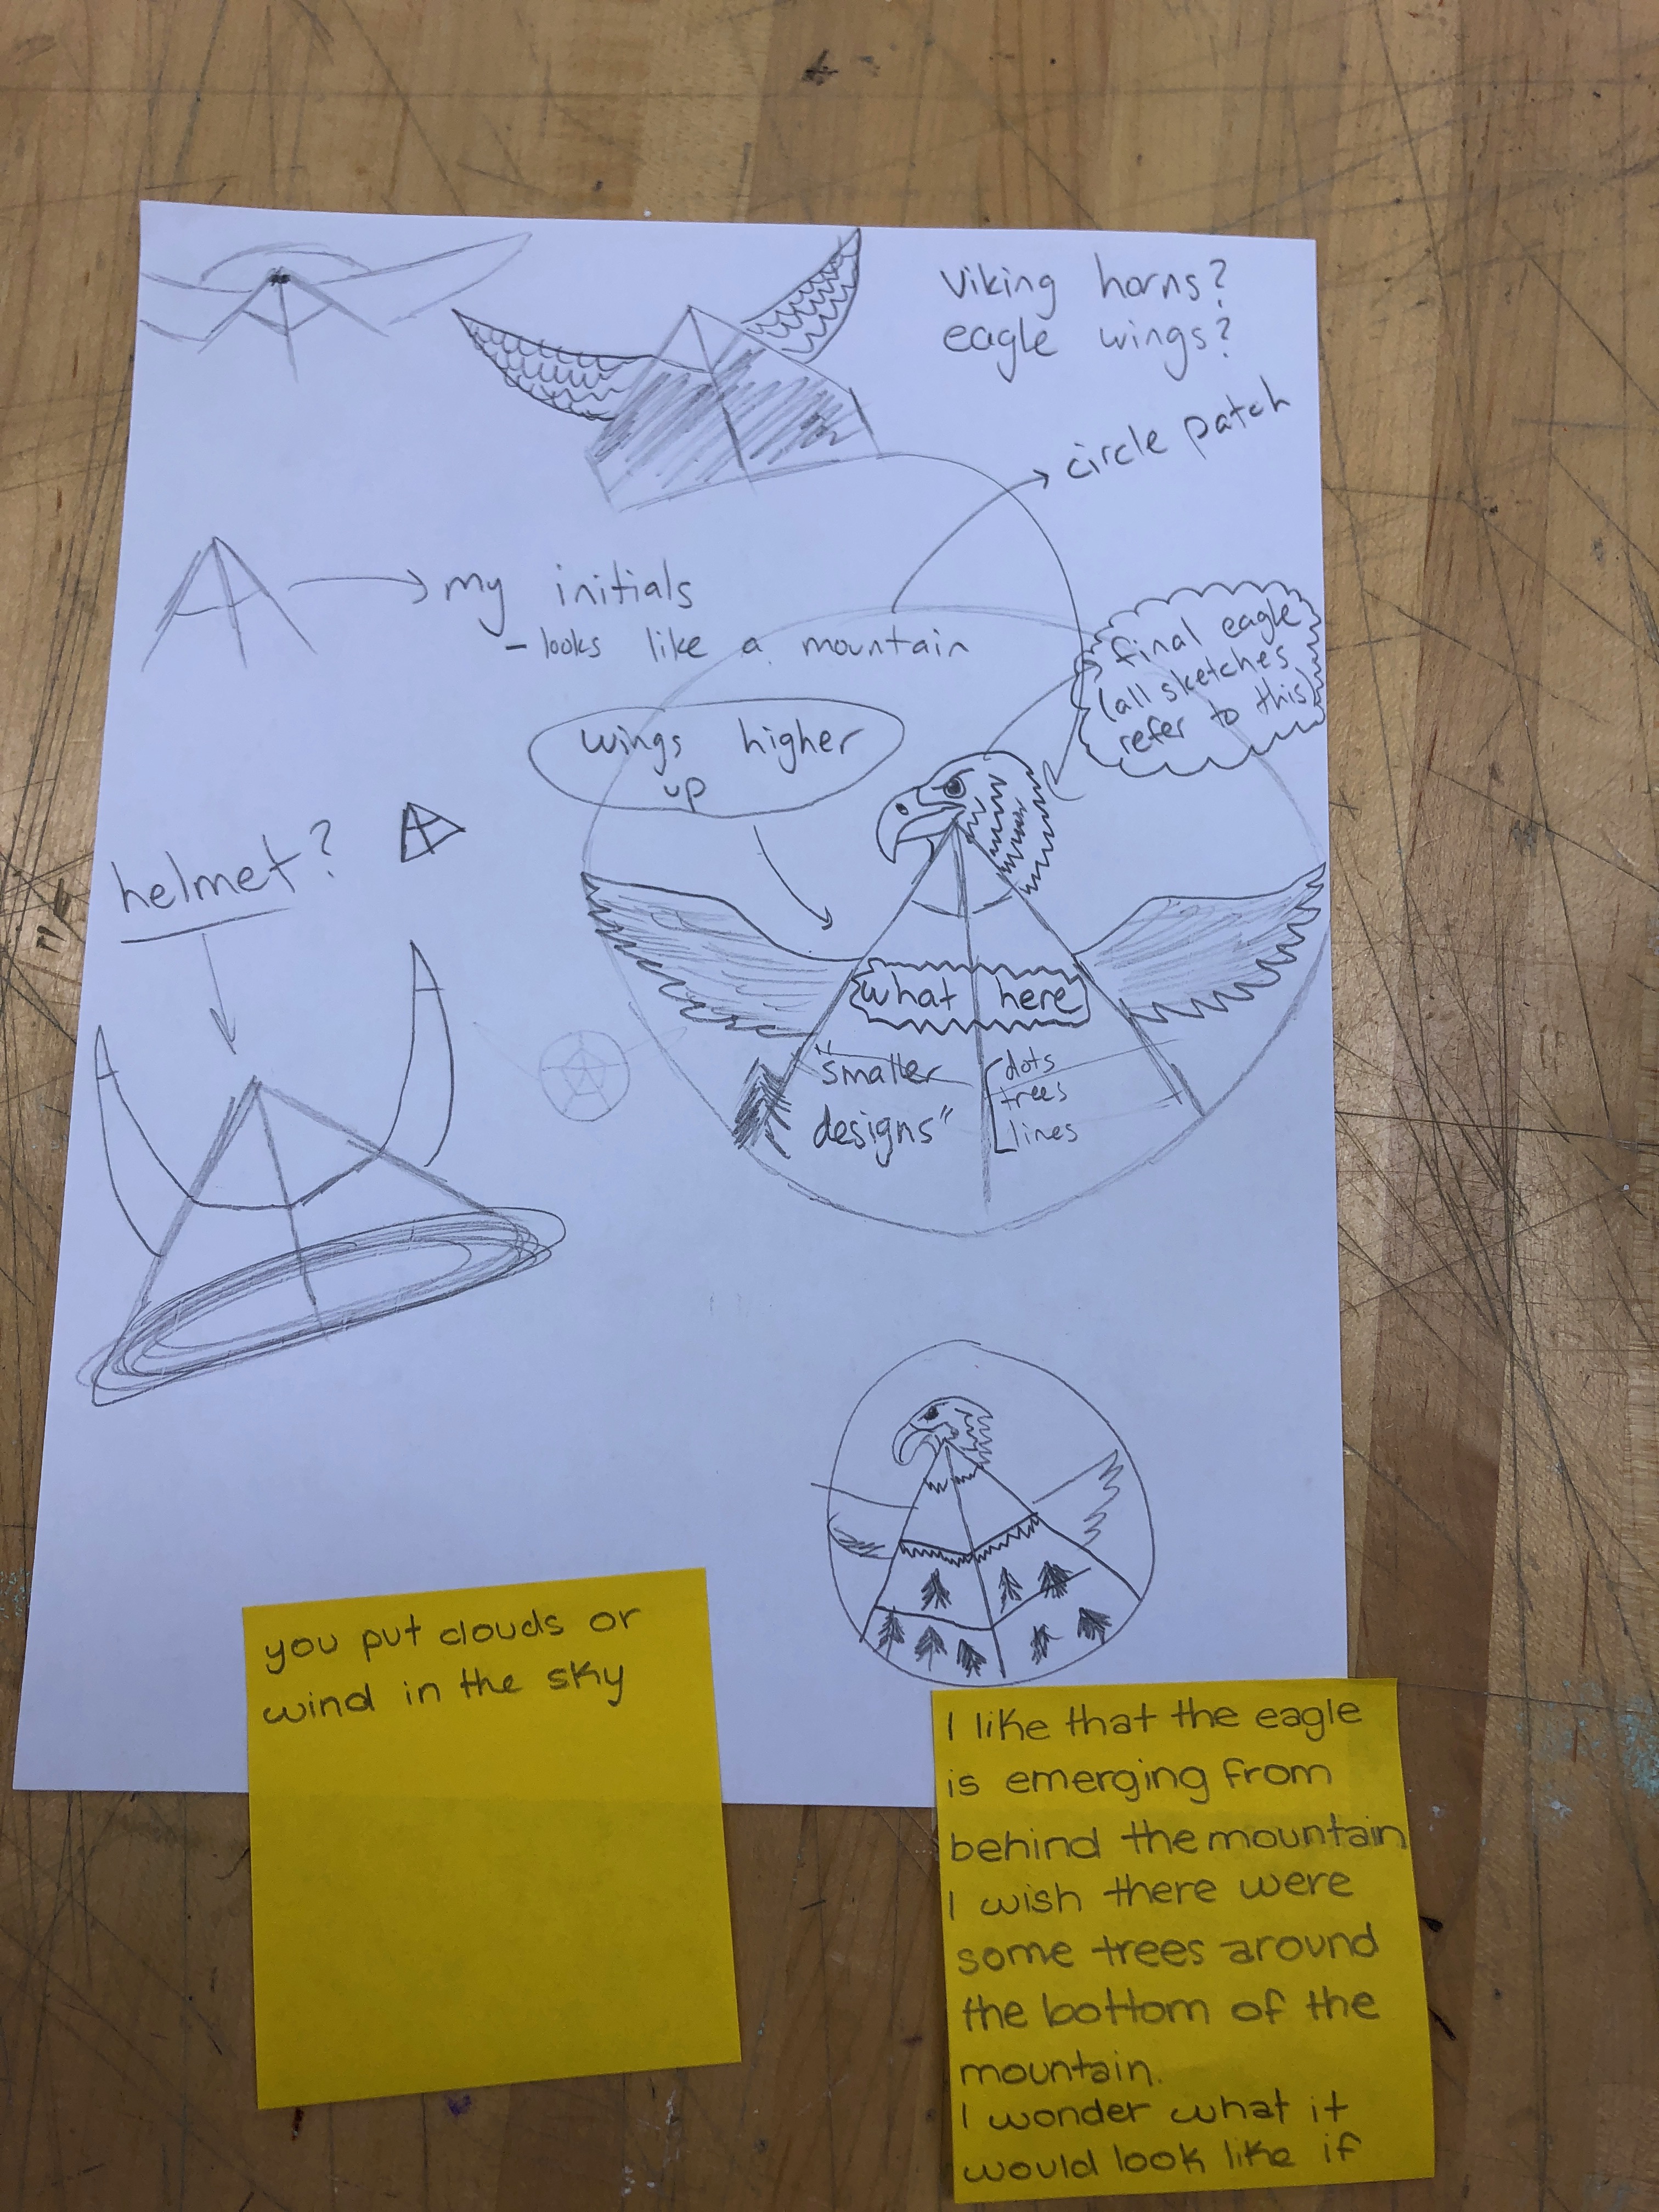 viking horns?
eagle wings?
circle patch
my initials
- looks like a mountain
final eagle
(all sketches
refer to this)
wings higher
up
helmet?
what here
"smaller
designs"
dots
trees
lines
I like that the eagle
is emerging from
behind the mountain
I wish there were
some trees around
the bottom of the
mountain.
I wonder what it
would look like if
you put clouds or
wind in the sky